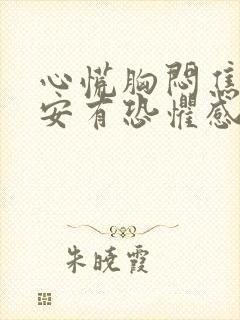 心慌胸闷焦
安有恐惧感
朱晓霞